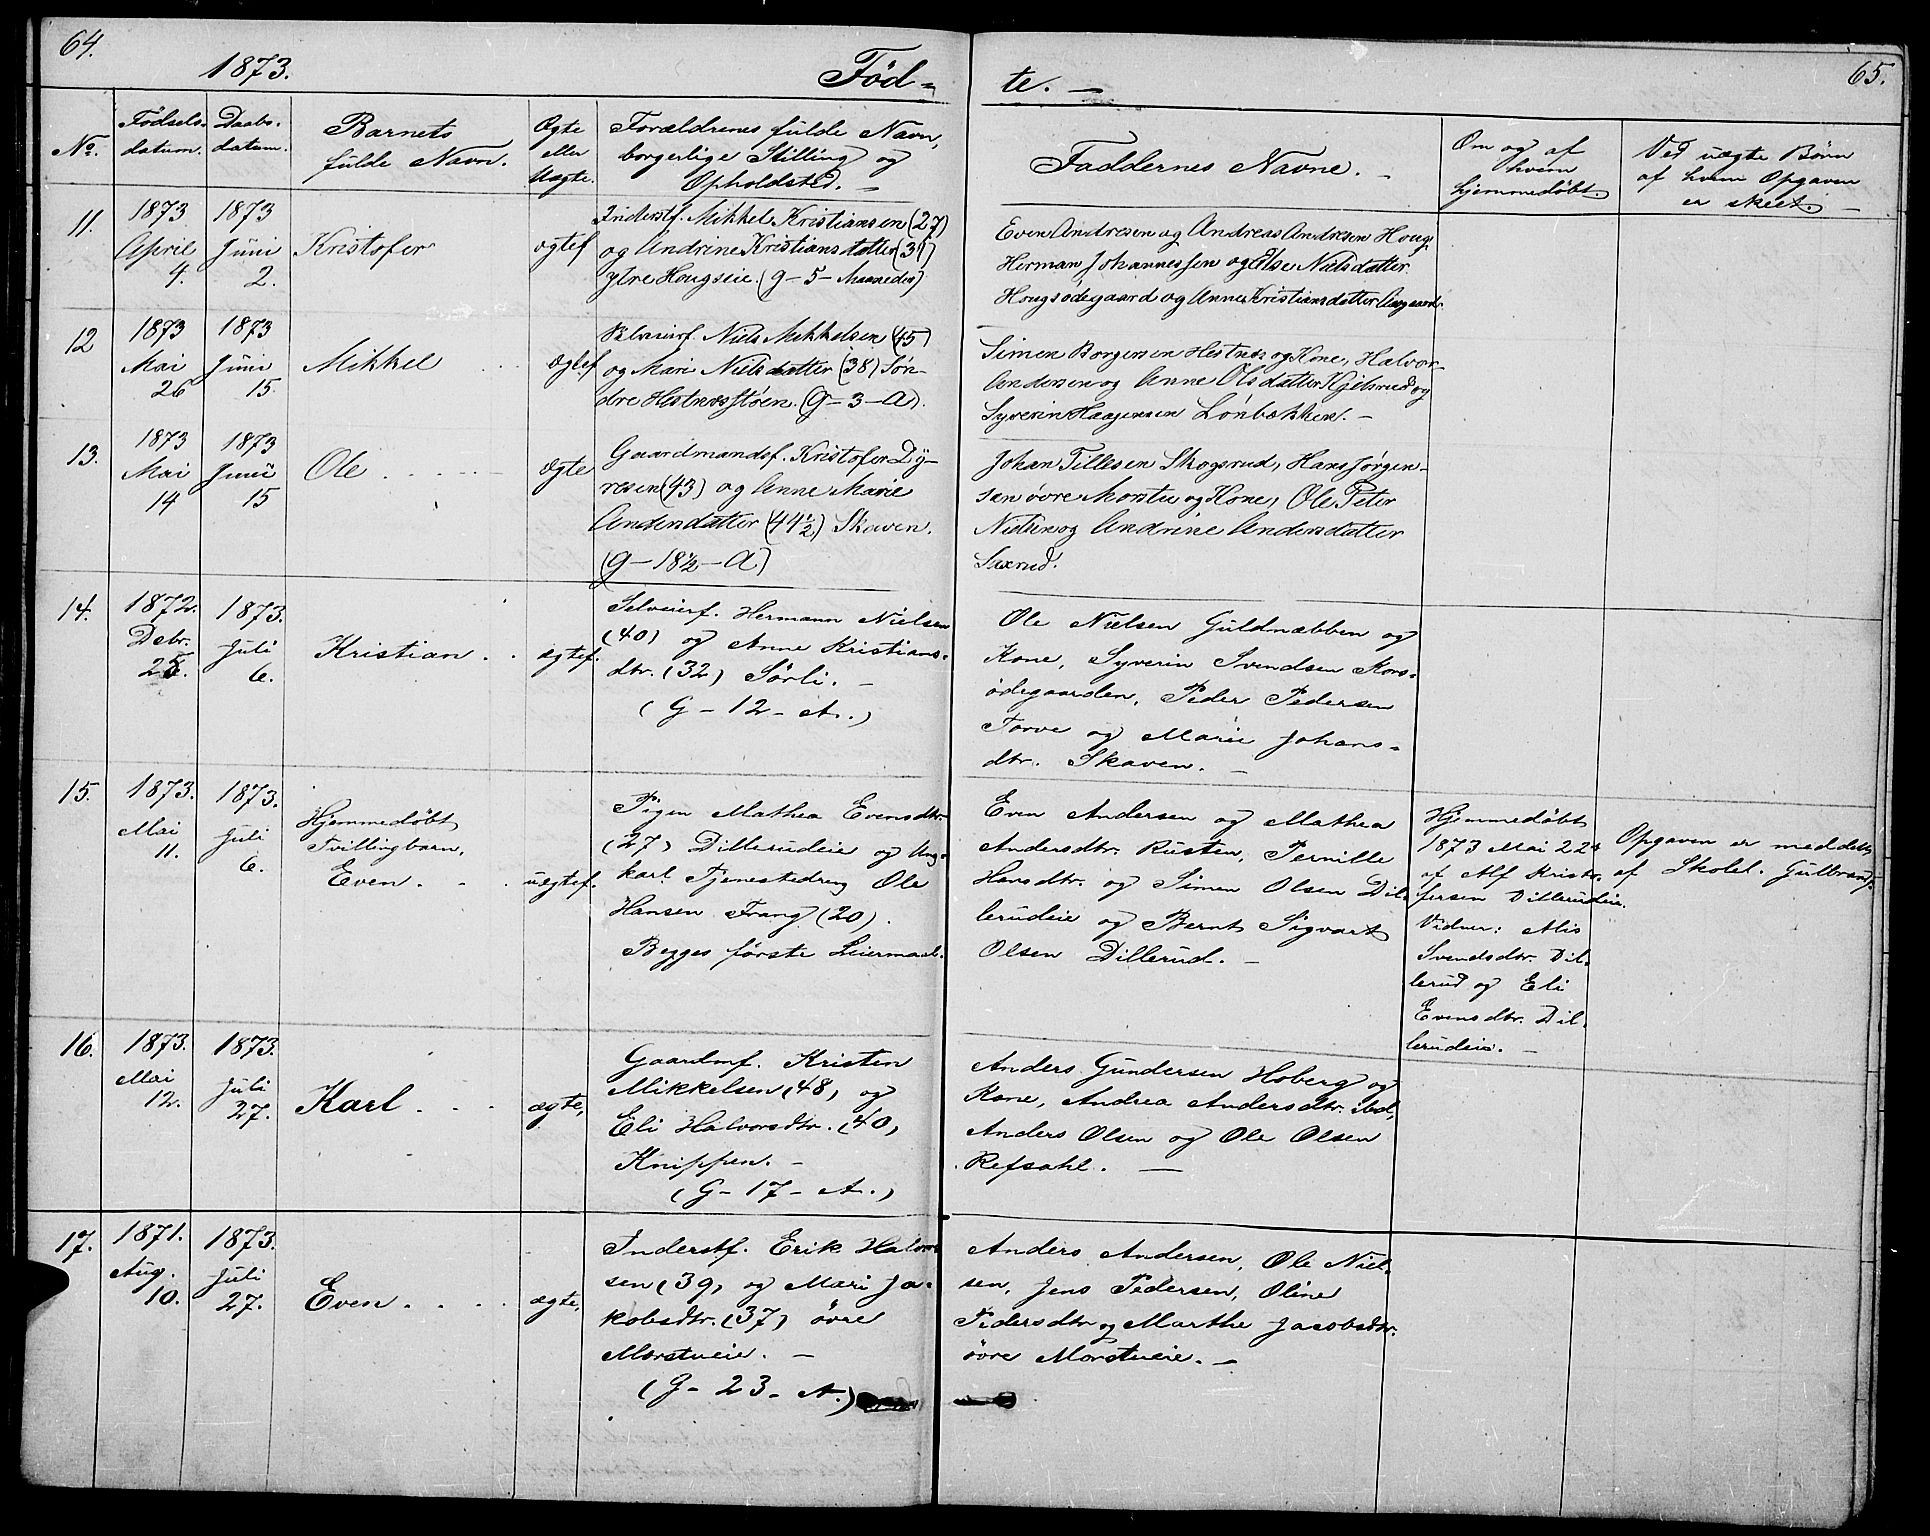 64.
1873.
Fød-
te. -
65.
No.
Fødsels-
datum.
Daabs-
datum.
Barnets
fulde Navn.
Ægte
eller
Uægte.
Forældrenes fulde Navn,
borgerlige Stilling og
Opholdsted. -
Faddernes Navne. -
Om og af
hvem
hjemmedøbt.
Ved uægte Børn
af hvem Opgaven
er skeet. -
11.
1873
April
4.
1873
Juni
2.
Kristofer
ægtef
Inderstf. Mikkel Kristiansen (27)
og Andrine Kristiansdatter (31)
ytre Hougseie. (g-5-Maaneder)
Even Andresen og Andreas Andresen Houg
Herman Johannessen og Else Nielsdatter
Hougsødegaard og Anne Kristiansdatter
12
1873
Mai
26
1873
Juni
15.
Mikkel
ægtef
Niels Mikkelsen (45)
og Mari Nielsdatter (38) Søn-
dre Hestnæsstøen. (g-3-A).
Simen Borgersen Hestnæs og Kone, Halvor
Andersen og Anne Olsdatter Kjelsrud og
Syverin Haagensen Lønbakken. -
13.
1873
Mai
14
1873
Juni
15
Ole
ægte
Gaardmandsf. Kristofer Dy-
resen (43) og Anne Marie
Andersdatter (44½) Skaven.
(g-18½-A)
Johan Tillesen Skogsrud, Hans Jørgen-
sen øvre Morstu og Kone, Ole Peter
Nielsen og Andrine Andersdatter
Saxrud.
14.
1872.
Debr.
25.
1873.
Juli
6.
Kristian
ægtef.
Selveierf. Hermann Nielsen
(40) og Anne Kristians-
dtr. (32) Sørli. -
(G-12-A.)
Ole Nielsen Guldnæbben og
Kone, Syverin Svendsen Kors-
ødegaarden, Peder Pedersen
Torve og Marie Johans-
dtr. Skaven. -
15.
1873.
Mai
11.
1873.
Juli
6.
Hjemmedøbt
Tvillingbarn,
Even
uægtef.
Pigen Mathea Evensdtr.
(27) Dillerudeie og Ung-
karl Tjenestedreng Ole
Hansen Frang (20).
Begges første Leiermaal.
Even Andersen og Mathea
Andersdtr. Rusten, Pernille
Hansdtr. og Simen Olsen Dil-
lerudeie og Bernt Sigvart
Olsen Dillerud. -
Hjemmedøbt
1873 Mai 22
af Alf Kristof-
fersen Dillerudeie.
Vidner: Alis
Svendsdtr. Dil-
lerud og Eli
Evensdtr. Dil-
lerudeie. -
Opgaven er meddelt
af Skolel. Gulbrand-
16.
1873.
Mai
12.
1873.
Juli
27.
Karl
ægte,
Gaardmf. Kristen
Mikkelsen (48) og
Eli Halvorsdtr. (40)
Knippen. -
(G-17-A.)
Anders Gundersen Hoberg og
Kone, Andrea Andersdtr. ibd,
Anders Olsen og Ole Olsen
Refsahl. -
17.
1871.
Aug.
10.
1873.
Juli
27.
Even
ægte,
Inderstf. Erik Halvor-
sen (39) og Mari Ja-
kobsdtr. (37) øvre
Morstueie. -
(G-23-A.)
Anders Andersen, Ole Niel-
sen, Jens Pedersen, Oline
Pedersdtr og Marthe Jacobsdtr.
øvre Morstueie. -